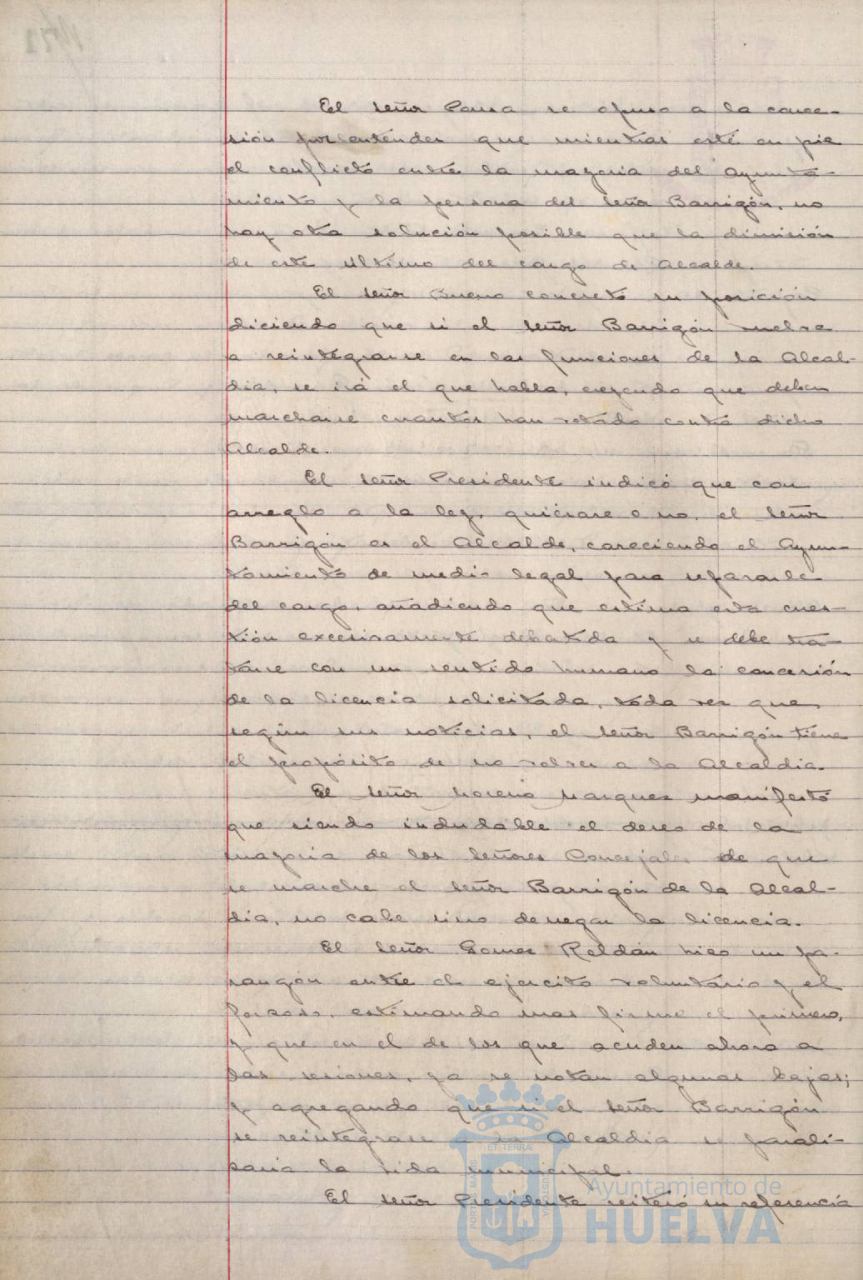 El señor Parra se opuso a la conce-
sión por entender que mientras esté en pie
el conflicto entre la mayoria del Ayunta-
miento y la persona del señor Barrigón, no
hay otra solución posible que la dimisión
de este ultimo del cargo de Alcalde.
El señor Bueno concretó su posición
diciendo que si el señor Barrigón vuelve
a reintegrarse en las funciones de la Alcal-
dia, se irá el que habla, creyendo que deben
marcharse cuantos han votado contra dicho
Alcalde.
El señor Presidente indicó que con
arreglo a la ley, quiérase o no, el señor
Barrigón es el Alcalde, careciendo el Ayun-
tamiento de medio legal para separarle
del cargo, añadiendo que estima esta cues-
tión excesivamente debatida y se debe tra-
tarse con un sentido humano la concesión
de la licencia solicitada, toda vez que,
según sus noticias, el señor Barrigón tiene
el propósito de no volver a la Alcaldia.
El señor Moreno Marquez manifestó
que siendo indudable el deseo de la
mayoria de los señores Concejales de que
se marche el señor Barrigón de la Alcal-
dia, no cabe sino denegar la licencia.
El señor Gomez Roldán hizo un pa-
rangón entre el ejercito voluntario y el
forzoso, estimando mas firme el primero,
y que en el de los que acuden ahora a
las sesiones, ya se notan algunas bajas;
y agregando que si el señor Barrigón
se reintegrase a la Alcaldia se parali-
saria la vida municipal.
El señor Presidente reiteró su referencia
Ayuntamiento de
HUELVA